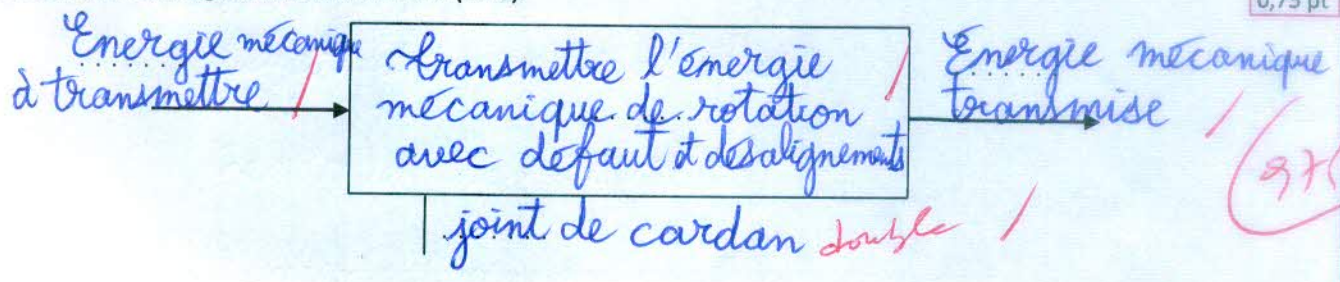 0,75 pt
Energie mécanique
à transmettre
transmettre l'énergie
mécanique de rotation
avec défaut d désalignements
Energie mécanique
transmise
joint de cardan double